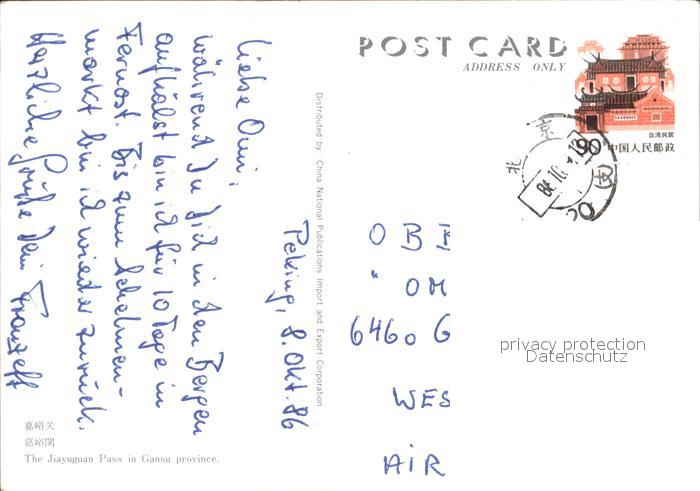 POST CARD
ADDRESS ONLY
台湾民居
90
中国人民邮政
北京
(支)
Distributed by China National Publications Import and Export Corporation
Peking, 8. Okt. 86
Liebe Omi,
während Du Dich in den Bergen
aufhälst bin ich für 10 Tage in
Fernost. Bis zum Schelmen-
markt bin ich wieder zurück.
Herzliche Grüße Dein
O B E
" OM
6460 G
WES
AIR
privacy protection
Datenschutz
嘉峪关
嘉峪関
The Jiayuguan Pass in Gansu province.